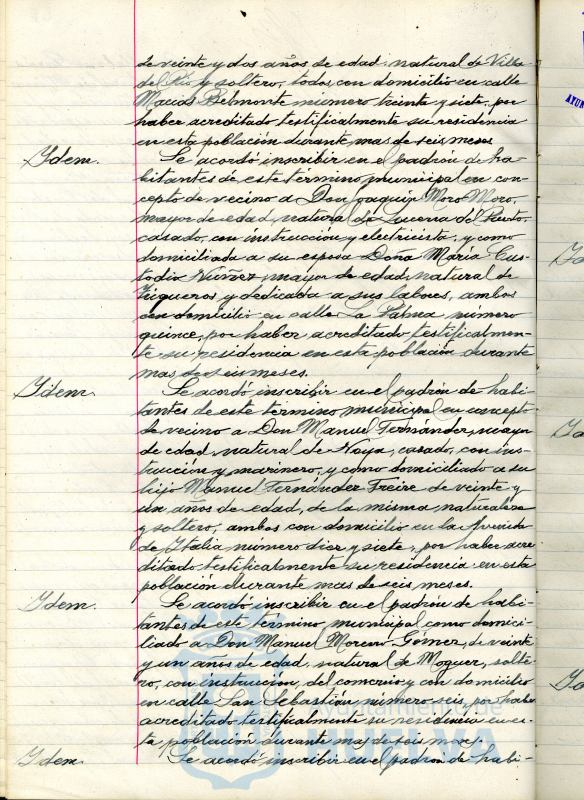 de veinte y dos años de edad, natural de Villa-
del Rio y soltero, todos con domicilio en calle
Macias Belmonte número treinta y siete, por
haber acreditado testificalmente su residencia
en esta población durante mas de seis meses
Ydem. Se acordó inscribir en el padrón de ha-
bitantes de este término municipal en con-
cepto de vecino a Don Joaquin Moro Moro,
mayor de edad, natural de Lucena del Puerto,
casado, con instrucción y electricista, y como
domiciliada a su esposa Doña Maria Cus-
todio Nuñez, mayor de edad, natural de
Trigueros y dedicada a sus labores, ambos
con domicilio en calle La Palma número
quince, por haber acreditado testificalmen-
te su residencia en esta población durante
mas de seis meses.
Ydem. Se acordó inscribir en el padrón de habi-
tantes de este término municipal en concepto
de vecino a Don Manuel Fernández, mayor
de edad, natural de Noya, casado, con ins-
trucción y marinero, y como domiciliado a su
hijo Manuel Fernández Freire de veinte y
un años de edad, de la misma naturaleza
y soltero, ambos con domicilio en la Avenida
de Italia número diez y siete, por haber acre
ditado testificalmente su residencia en esta
población durante mas de seis meses.
Ydem. Se acordó inscribir en el padrón de habi-
tantes de este término municipal como domici-
liado a Don Manuel Moreno Gómez, de veinte
y un años de edad, natural de Moguer, solte-
ro, con instrucción, del comercio y con domicilio
en calle San Sebastián número seis, por haber
acreditado testificalmente su residencia en es-
ta población durante mas de seis meses.
Ydem. Se acordó inscribir en el padrón de habi-
Ayuntamiento de
HUELVA